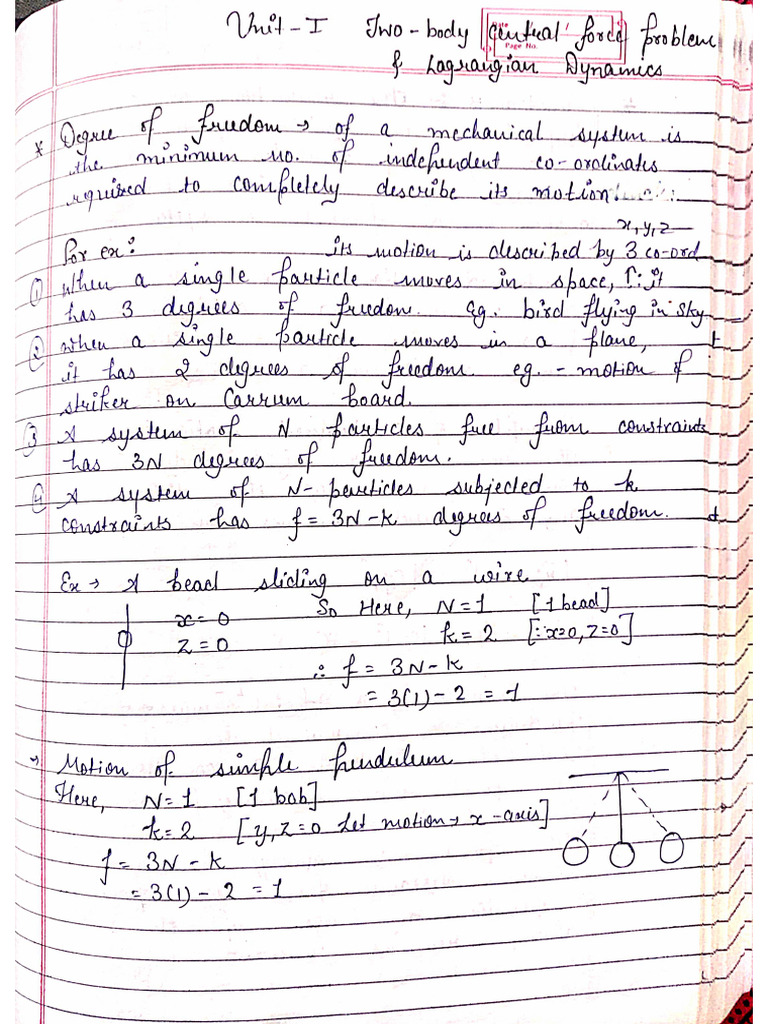 Unit-I Two-body Central force problem
Page No.
& Lagrangian Dynamics
* Degree of freedom → of a mechanical system is
the minimum no. of independent co-ordinates
required to completely describe its motion.
x, y, z
For ex: its motion is described by 3 co-ord
① When a single particle moves in space, ∵ it
has 3 degrees of freedom. Eg. bird flying in sky
② When a single particle moves in a plane,
it has 2 degrees of freedom eg. - motion of
striker on Carrum board.
③ A system of N particles free from constraints
has 3N degrees of freedom.
④ A system of N-particles subjected to k
constraints has f = 3N - k degrees of freedom.
Ex → A bead sliding on a wire
x = 0 So Here, N = 1 [1 bead]
z = 0 k = 2 [∵ x=0, z=0]
∴ f = 3N - k
= 3(1) - 2 = 1
→ Motion of simple pendulum
Here, N = 1 [1 bob]
k = 2 [y, z = 0 Let motion → x-axis]
f = 3N - k
= 3(1) - 2 = 1